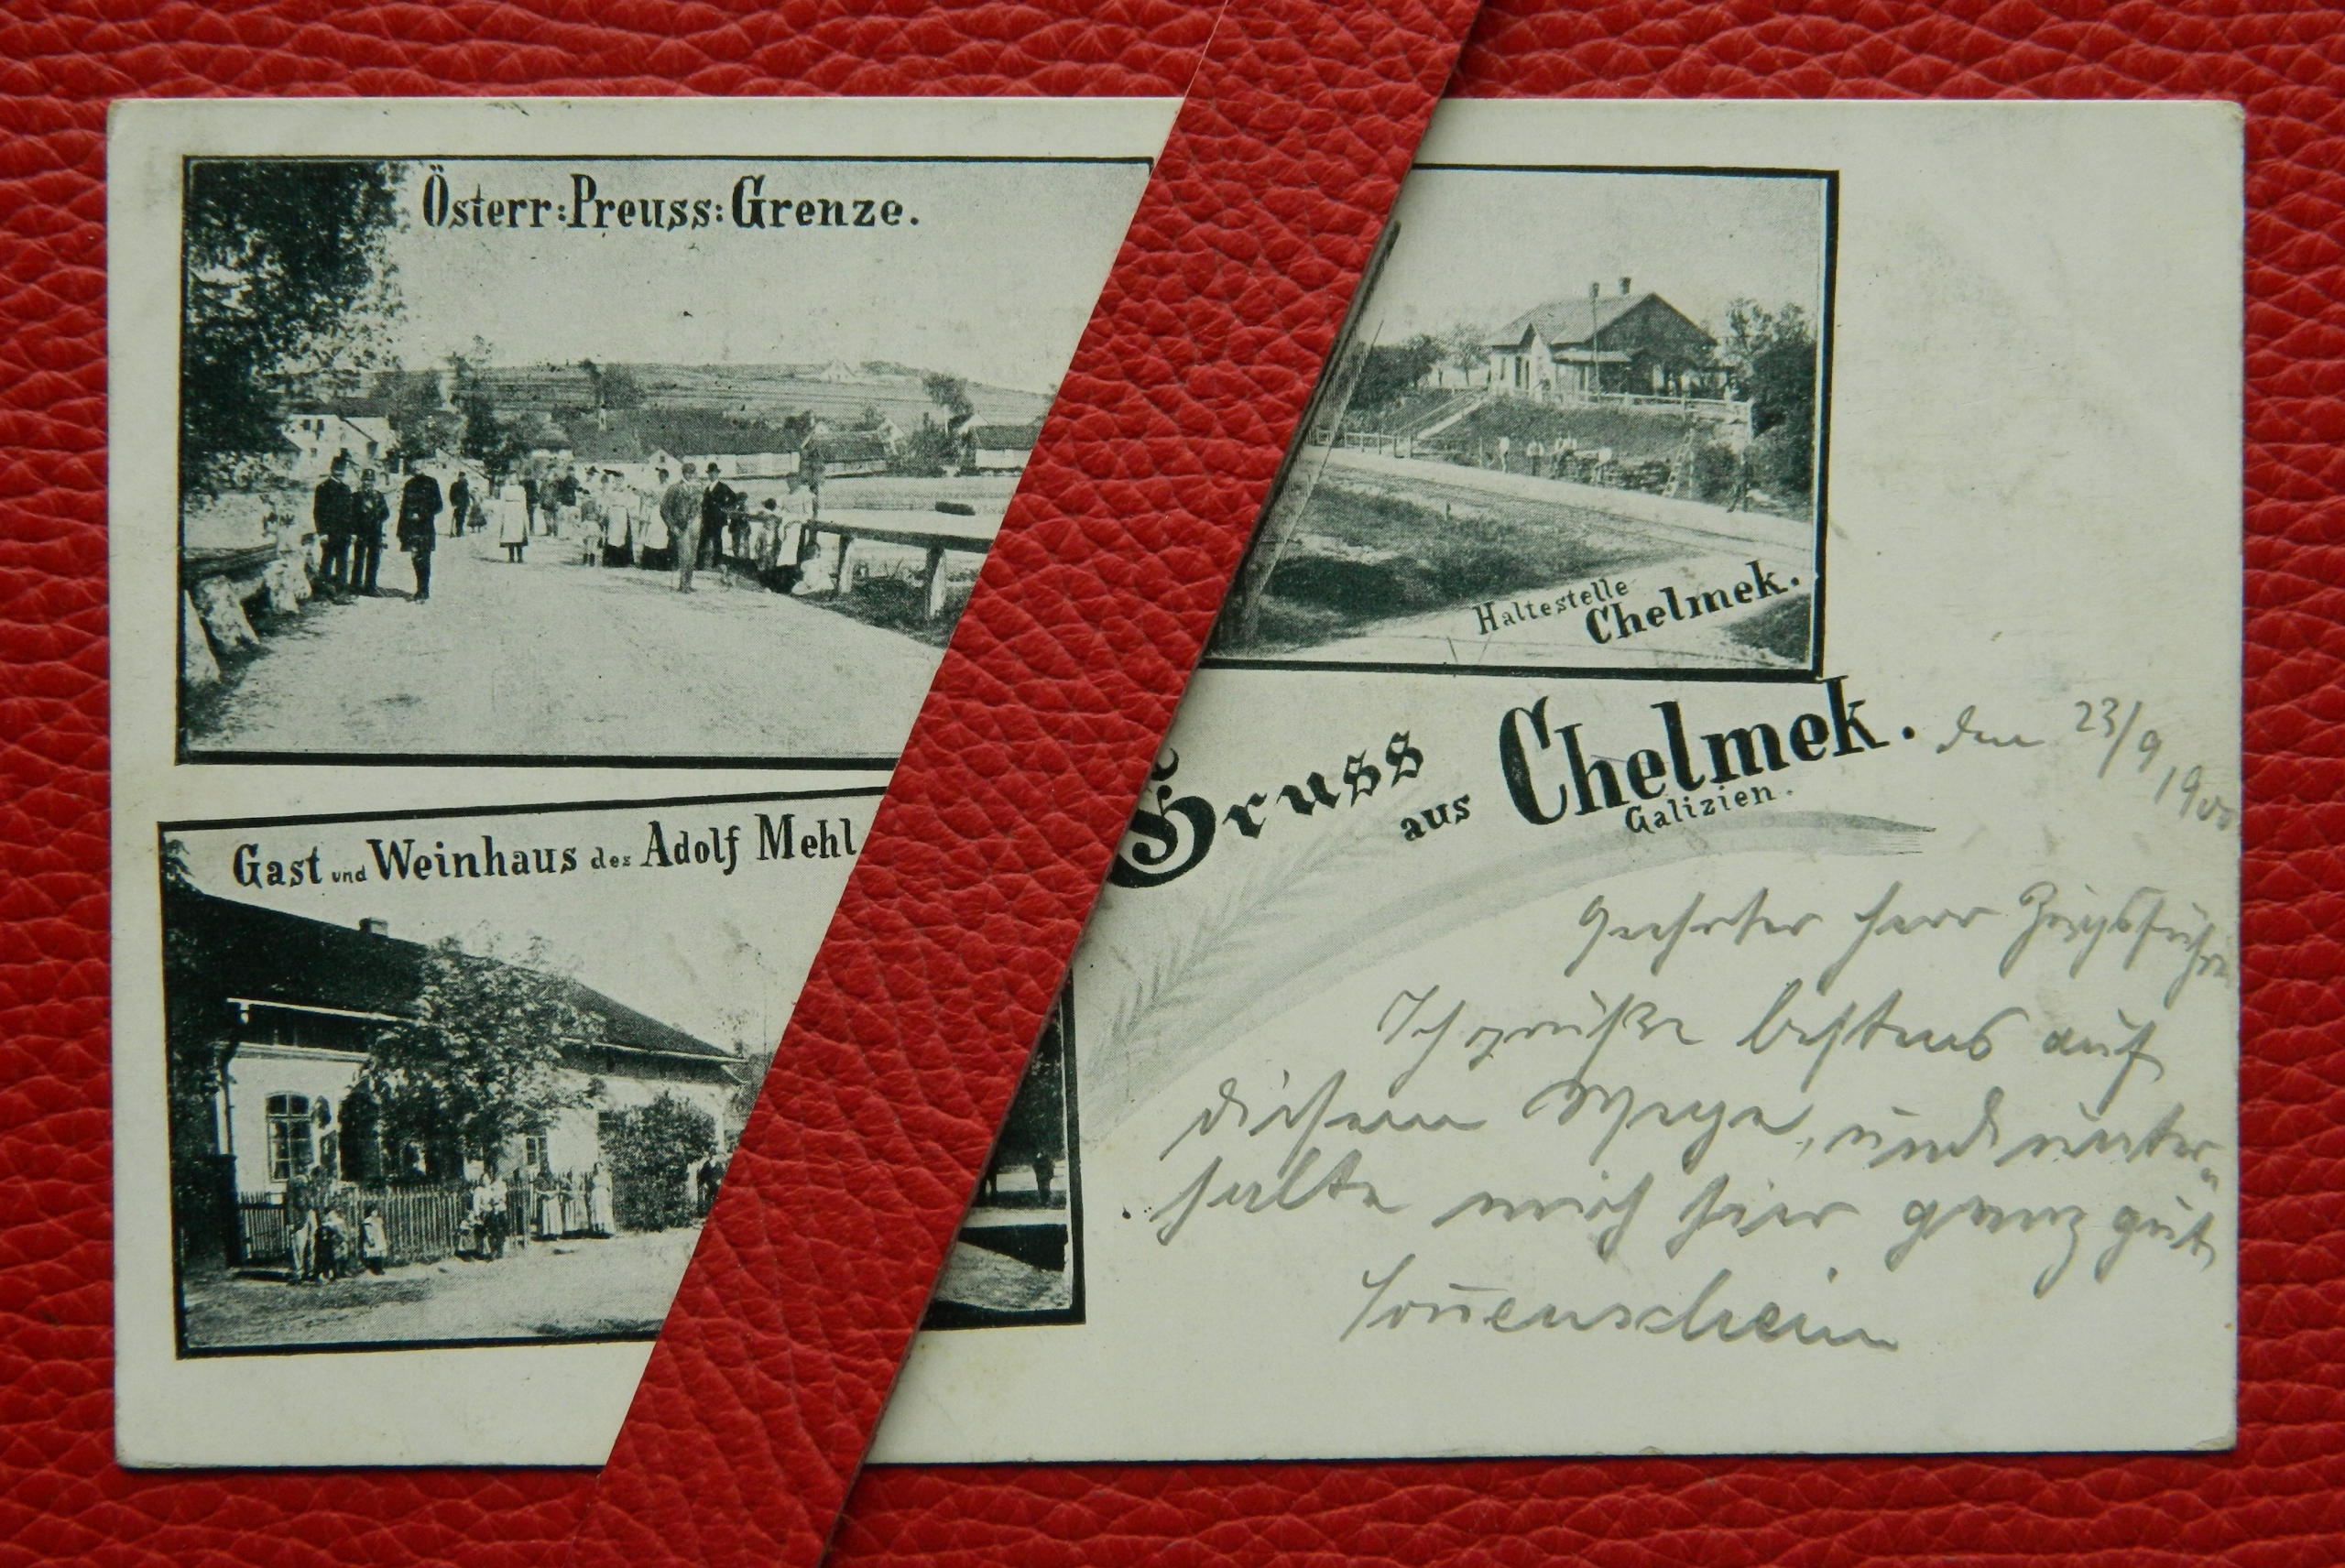 Österr:Preuss:Grenze.
Haltestelle
Chelmek.
Gruss
aus Chelmek.
Galizien.
den 23/9 1900
Gast und Weinhaus des Adolf Mehl
Geehrter Herr Zugsführer
Ich grüße bestens auf
diesem Wege, und unter=
halte mich hier ganz gut
Sonnenschein